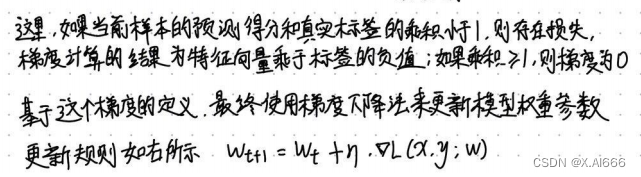 这里,如果当前样本的预测得分和真实标签的乘积小于1,则存在损失,
梯度计算的结果为特征向量乘于标签的负值;如果乘积≥1,则梯度为0
基于这个梯度的定义,最终使用梯度下降法来更新模型权重参数
更新规则如右所示 Wt+1 = Wt + η · ∇L(x,y;w)
CSDN @X.AI666